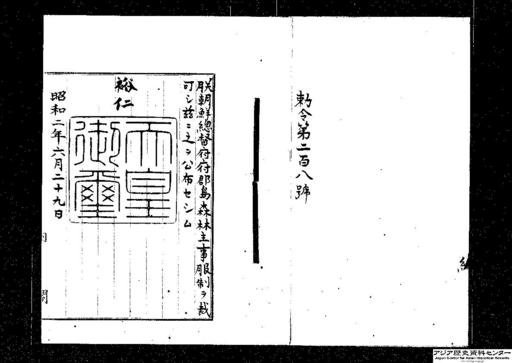 勅令第二百八號
朕朝鮮總督府府郡島森林主事服制ヲ裁
可シ茲ニ之ヲ公布セシム
裕仁
天皇
御璽
昭和二年六月二十九日
内
閣
アジア歴史資料センター
Japan Center for Asian Historical Records